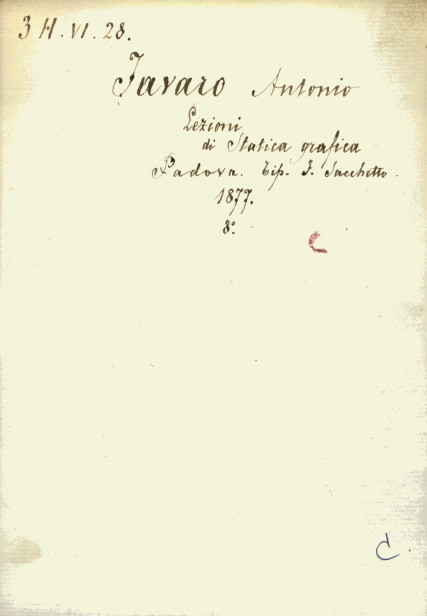 3 H. VI. 28.
Favaro Antonio
Lezioni
di Statica grafica
Padova. Tip. F. Sacchetto.
1877.
8°
C
C.